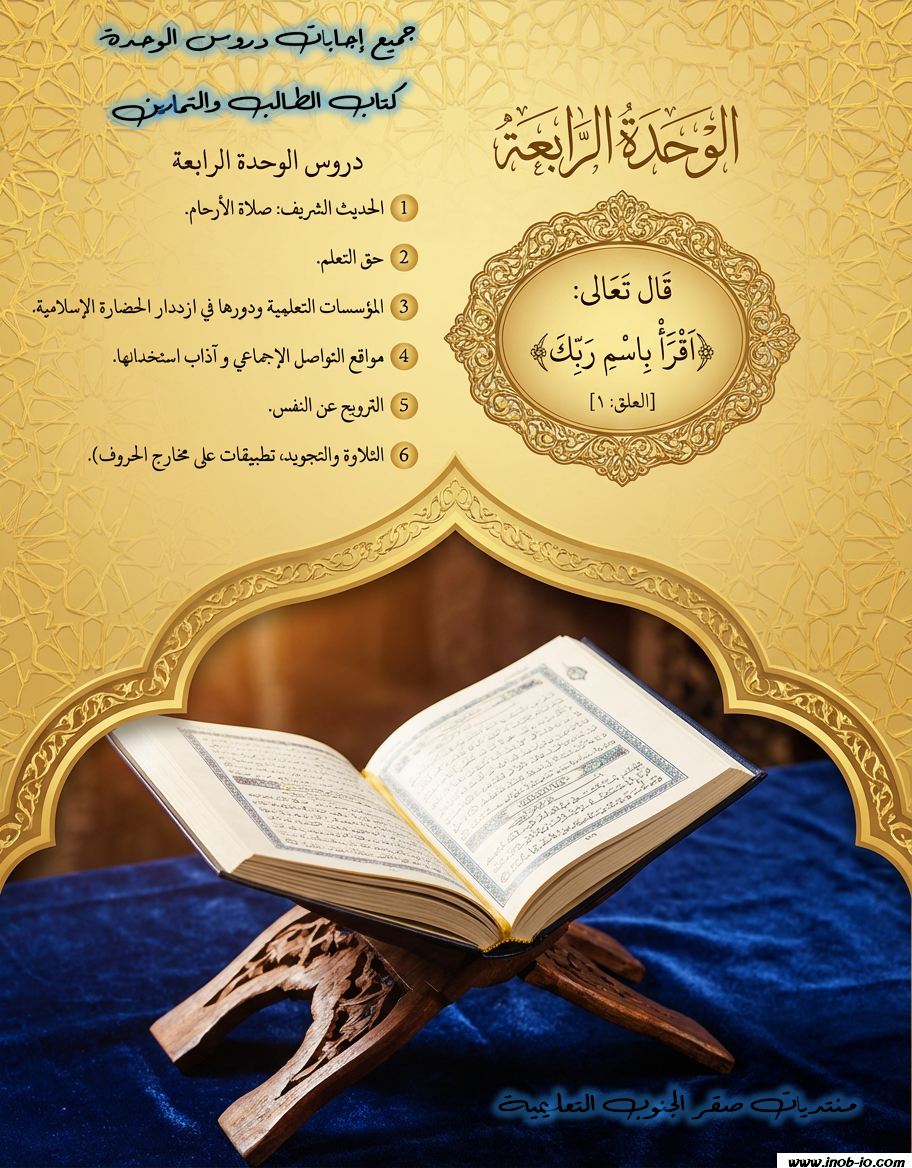 جميع إجابات دروس الوحدة
كتاب الطالب والتمارين
الوَحَدَةُ الرَّابِعَةُ
دروس الوحدة الرابعة
1 الحديث الشريف: صلاة الأرحام.
2 حق التعلم.
3 المؤسسات التعلمية ودورها في ازددار الحضارة الإسلامية.
4 مواقع التواصل الإجماعي و آذاب استخدانها.
5 الترويج عن النفس.
6 الثلاوة والتجويد، تطبيقات على مخارج الحروف).
قَال تَعَالى:
﴿اَقْرَأْ بِاسْمِ رَبِّكَ﴾
[العلق: ١]
منتديات صقر الجنوب التعليمية
www.jnob-jo.com